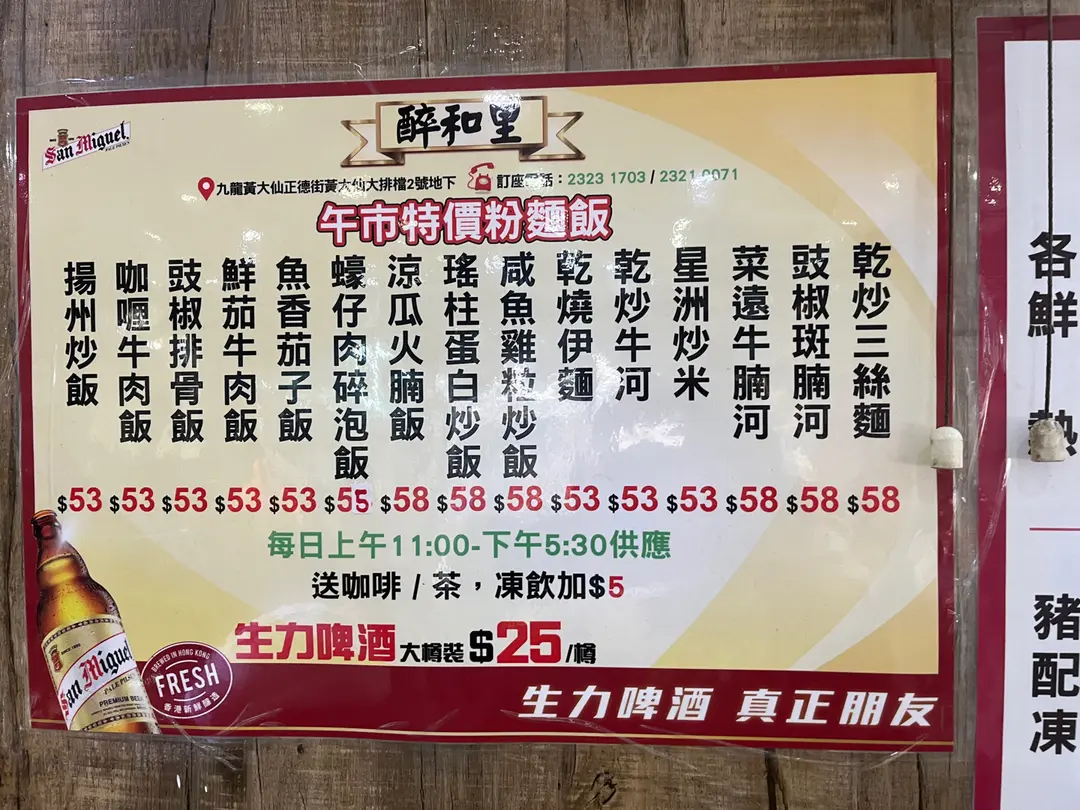 San Miguel
PALE PILSEN
醉和里
九龍黃大仙正德街黃大仙大排檔2號地下
訂座電話：2323 1703 / 2321 0071
午市特價粉麵飯
揚州炒飯 $53
咖喱牛肉飯 $53
豉椒排骨飯 $53
鮮茄牛肉飯 $53
魚香茄子飯 $53
蠔仔肉碎泡飯 $55
涼瓜火腩飯 $58
瑤柱蛋白炒飯 $58
咸魚雞粒炒飯 $58
乾燒伊麵 $53
乾炒牛河 $53
星洲炒米 $53
菜遠牛腩河 $58
豉椒斑腩河 $58
乾炒三絲麵 $58
每日上午11:00-下午5:30供應
送咖啡 / 茶，凍飲加$5
生力啤酒 大樽裝 $25/樽
San Miguel
PALE PILSEN
PREMIUM BEER
BREWED IN HONG KONG
FRESH
香港新鮮釀造
生力啤酒 真正朋友
各鮮
熱
豬配凍